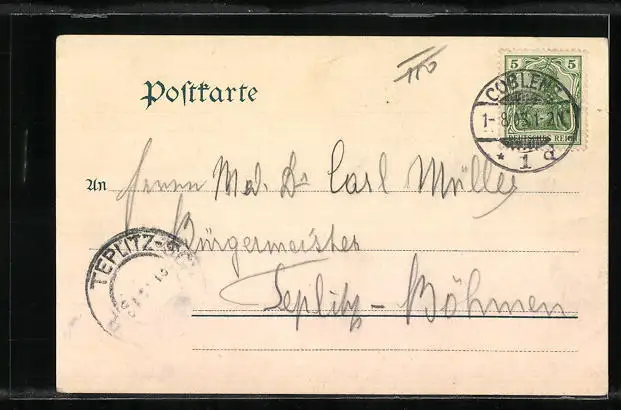 110
Postkarte
5 5
DEUTSCHES REICH
COBLENZ
1-8 03 1-2N
* 1 d
An Herrn Med. Dr. Carl Müller
Bürgermeister
TEPLITZ-
Teplitz-Böhmen